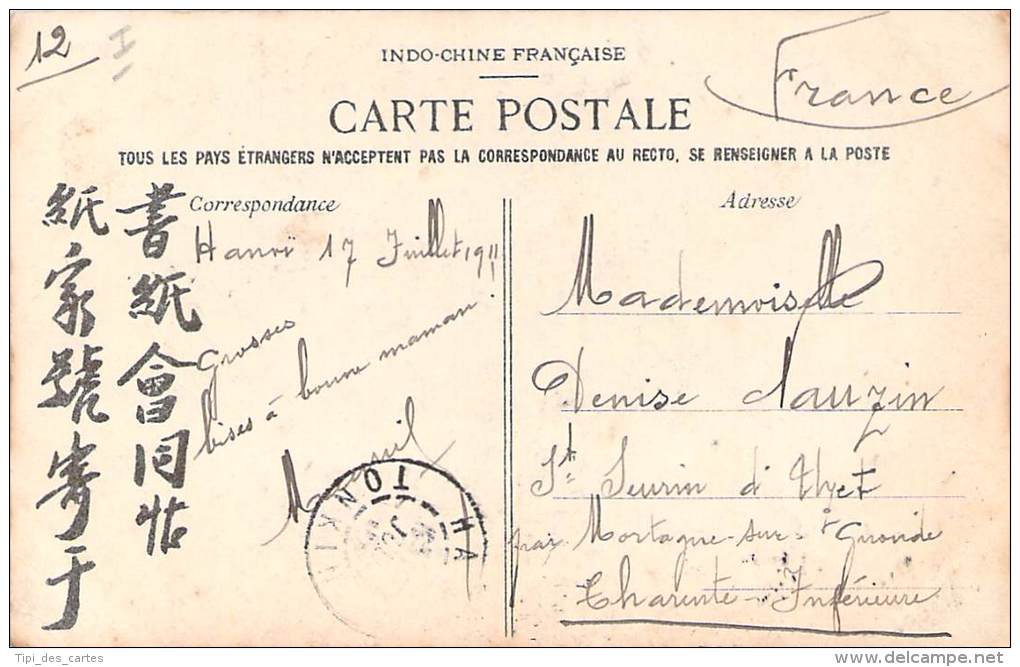 12
INDO-CHINE FRANÇAISE
France
CARTE POSTALE
TOUS LES PAYS ÉTRANGERS N'ACCEPTENT PAS LA CORRESPONDANCE AU RECTO, SE RENSEIGNER A LA POSTE
Correspondance
Adresse
書紙會同帖
紙家號寄于
Hanoï 17 Juillet 1911
Grosses
bises à bonne maman!
TONKIN
HA
Mademoiselle
Denise Dauzin
St Seurin d'Uzet
par Mortagne-sur-Gironde
Charente-Inférieure
Tipi_des_cartes
www.delcampe.net